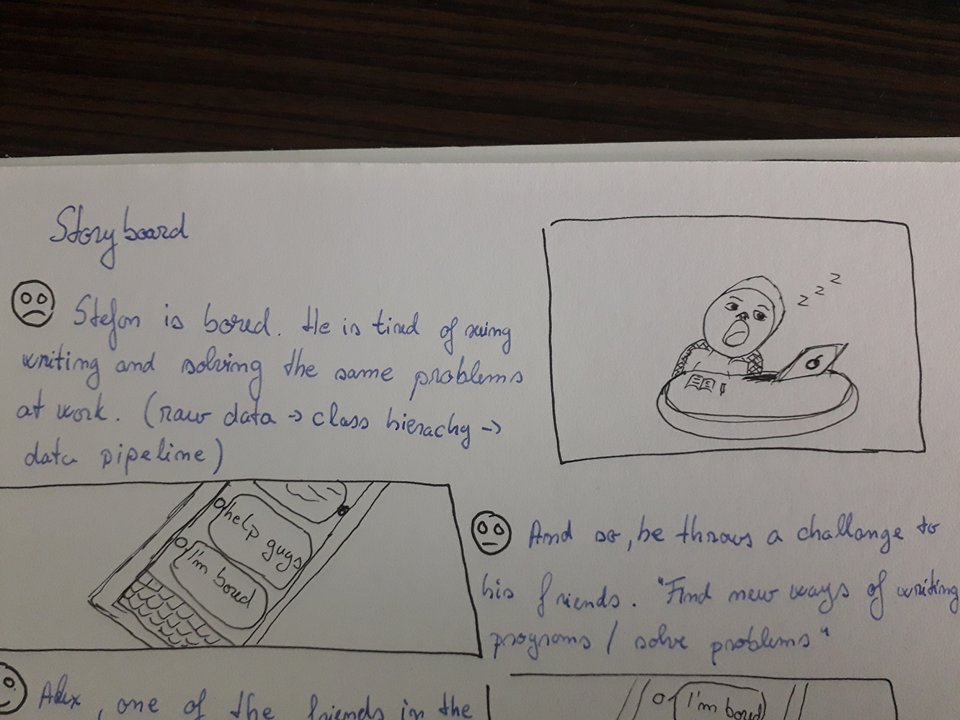 Storyboard
Stefan is bored. He is tired of
writing and solving the same problems
at work. (raw data → class hierachy →
data pipeline)
z z z
help guys
I'm bored
And so, he throws a challange to
his friends. "Find new ways of writing
programs / solve problems"
Alex, one of the friends in the
I'm bored